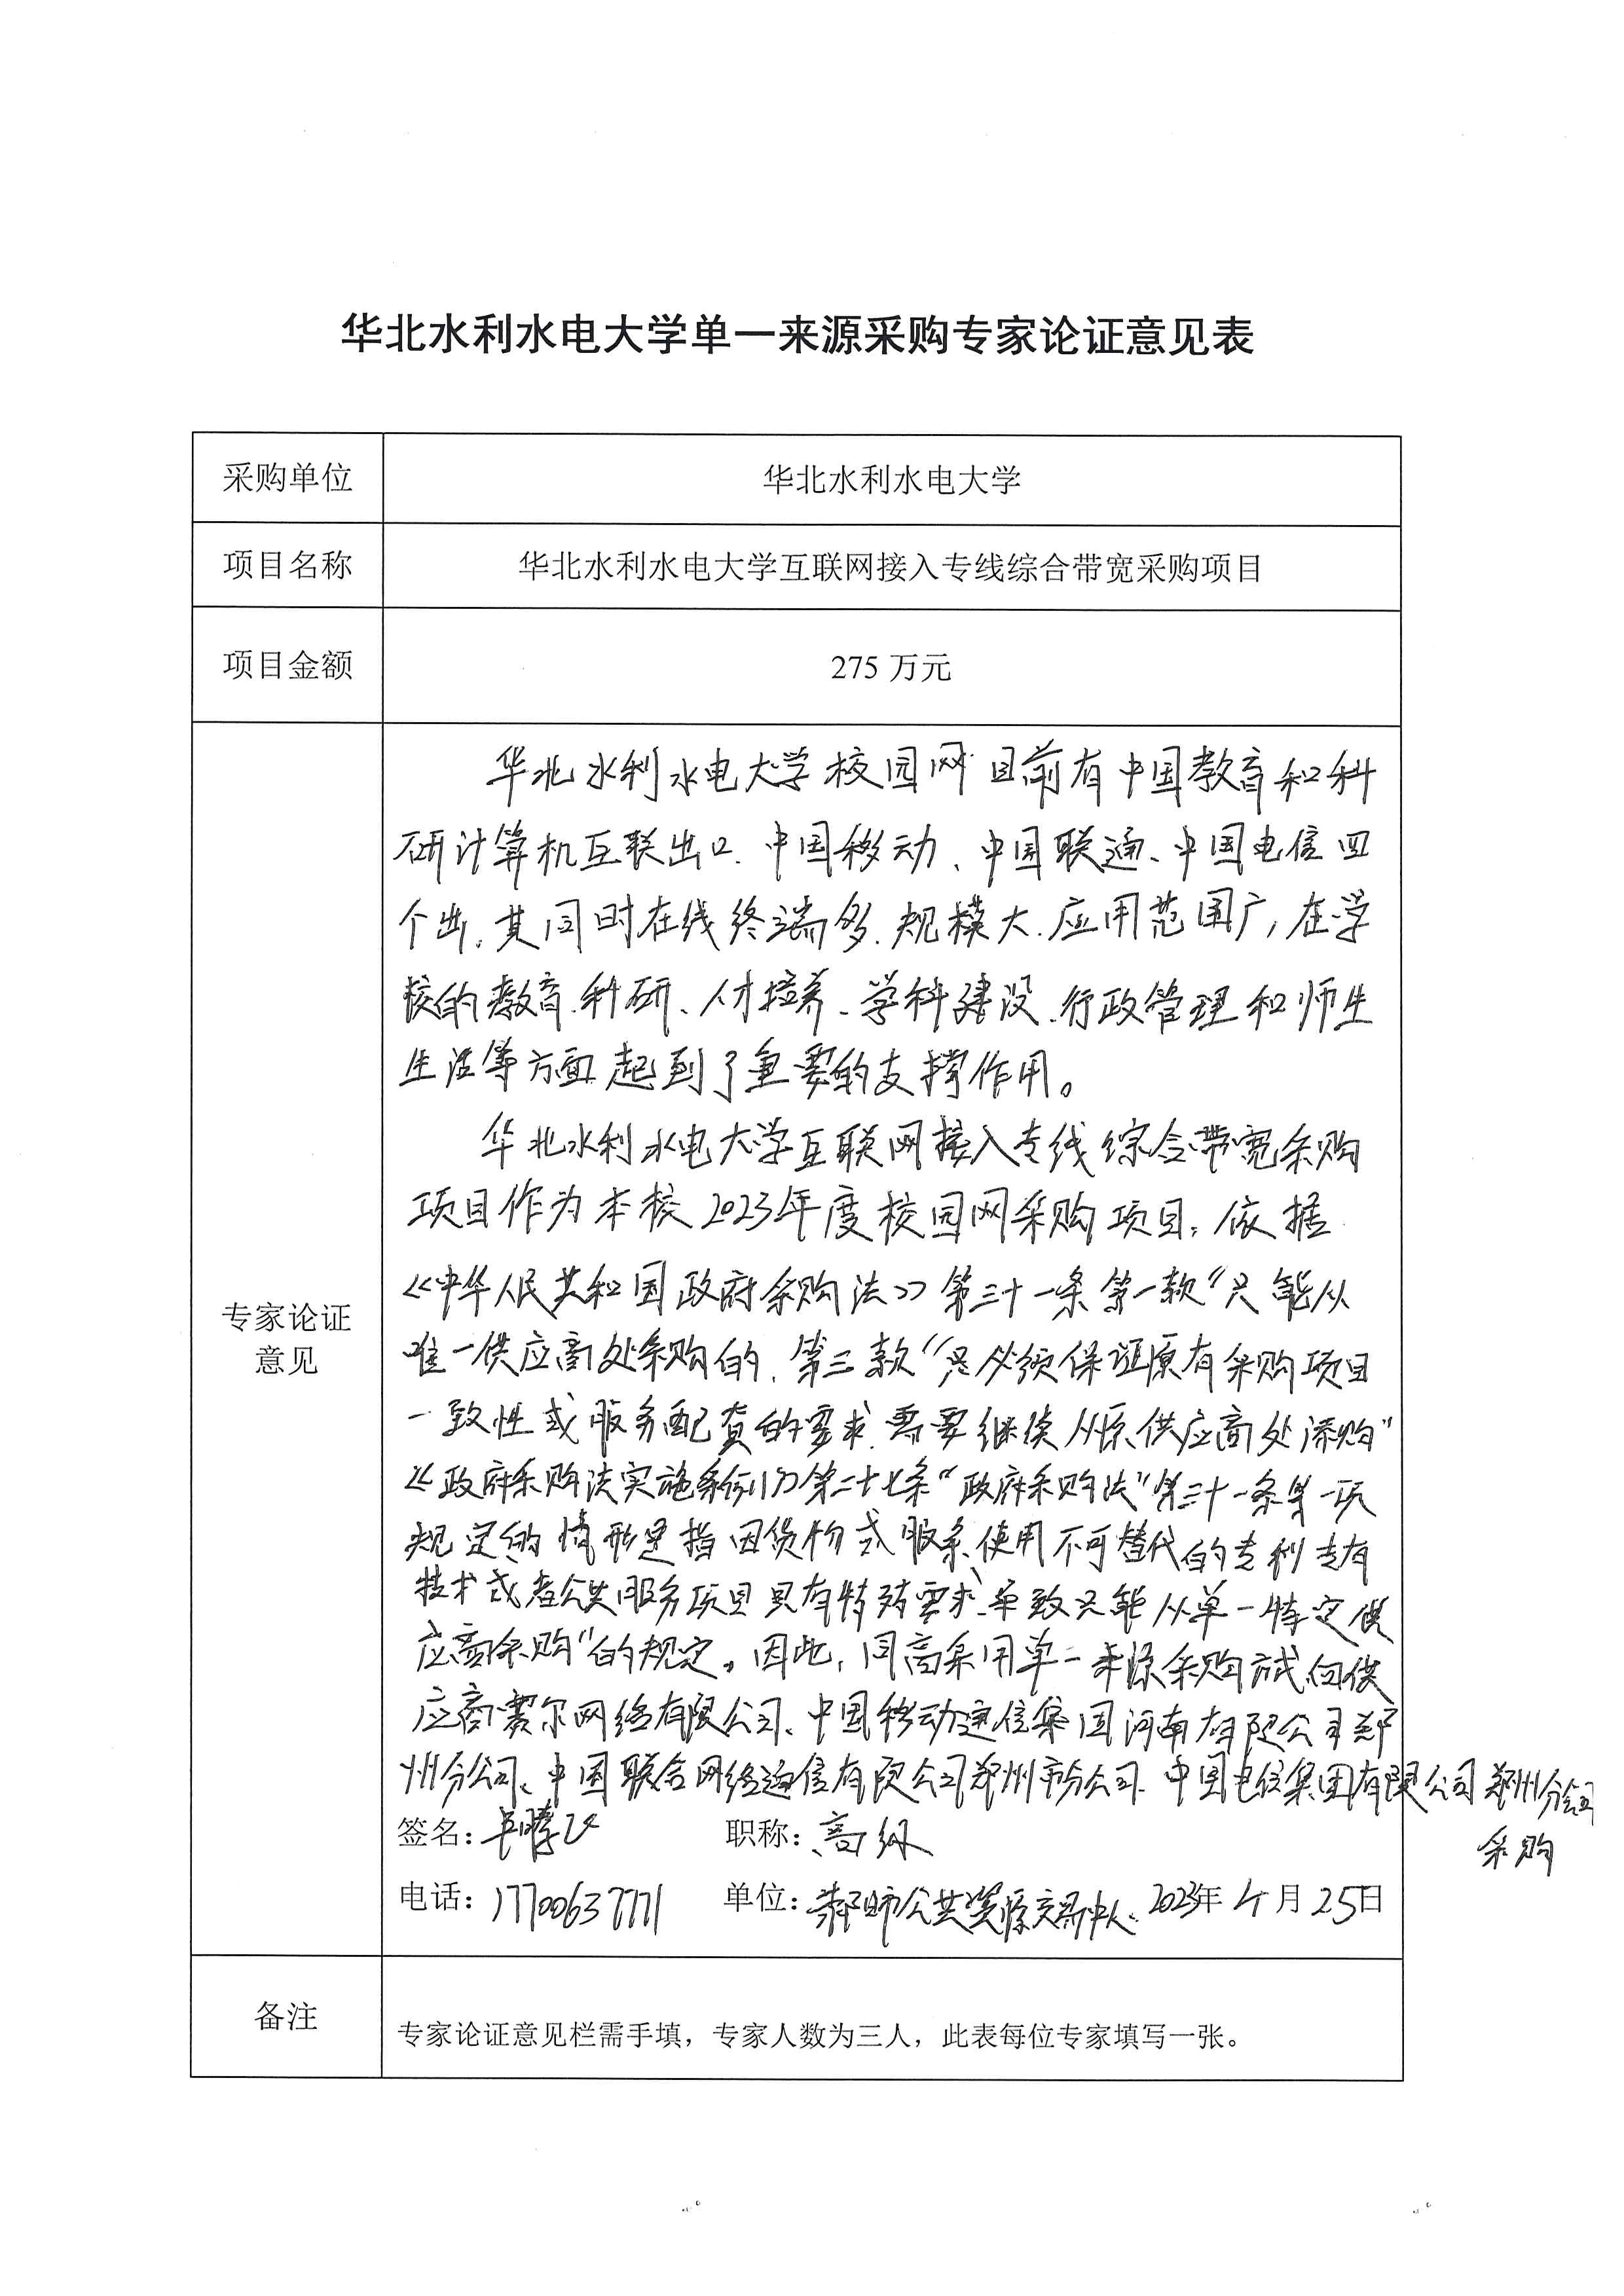 华北水利水电大学单一来源采购专家论证意见表
采购单位
华北水利水电大学
项目名称
华北水利水电大学互联网接入专线综合带宽采购项目
项目金额
275 万元
专家论证
意见
华北水利水电大学校园网目前有中国教育和科
研计算机互联出口、中国移动、中国联通、中国电信四
个出,其同时在线终端多、规模大、应用范围广,在学
校的教育、科研、人才培养、学科建设、行政管理和师生
生活等方面起到了重要的支撑作用。
华北水利水电大学互联网接入专线综合带宽采购
项目作为本校2023年度校园网采购项目,依据
《中华人民共和国政府采购法》第三十一条第一款"只能从
唯一供应商处采购的、第三款"只必须保证原有采购项目
一致性或服务配套的要求,需要继续从原供应商处添购"
《政府采购法实施条例》第二十七条"政府采购法"第三十一条第一项
规定的情形是指因货物或服务使用不可替代的专利专有
技术或者公共服务项目具有特殊要求,导致只能从单一特定供
应商采购"的规定。因此,同意采用单一来源采购方式向供
应商赛尔网络有限公司、中国移动通信集团河南有限公司郑
州分公司、中国联合网络通信有限公司郑州市分公司、中国电信集团有限公司郑州分公司
采购
签名: 职称:高级
电话:17700637771 单位: 公共资源交易中心 2023年4月25日
备注
专家论证意见栏需手填，专家人数为三人，此表每位专家填写一张。